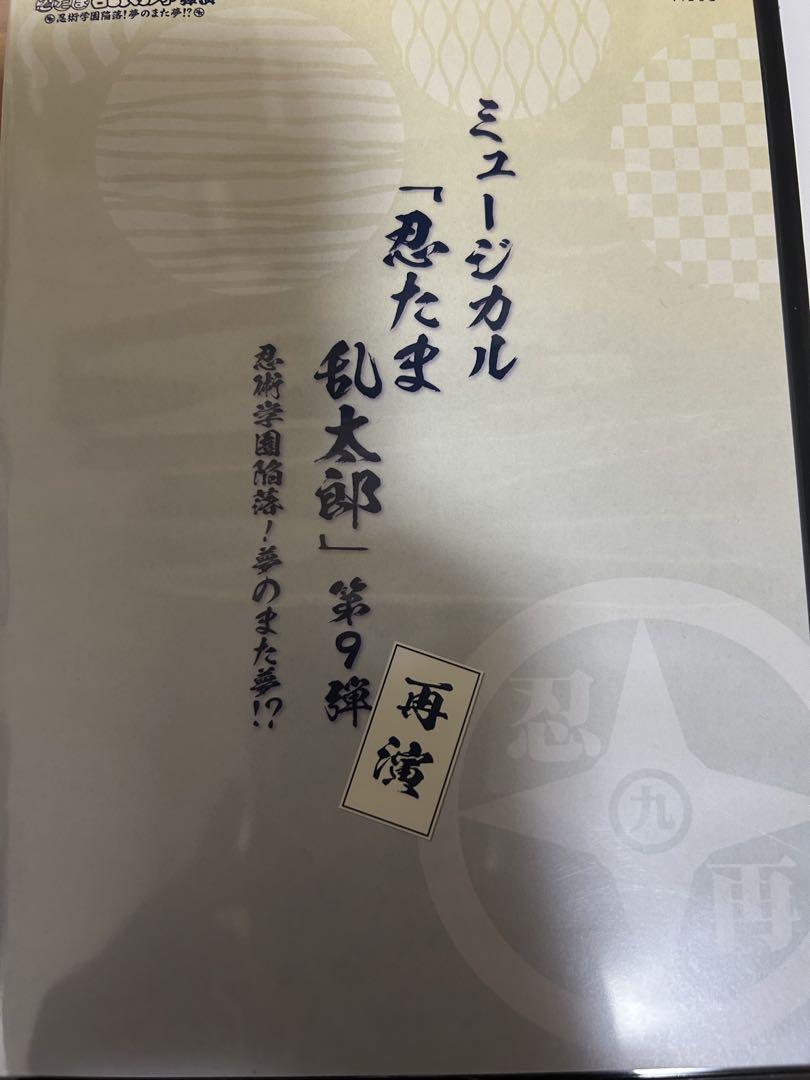 忍術学園陥落!夢のまた夢!?
ミュージカル
「忍たま
乱太郎」第9弾
再演
忍術学園陥落!夢のまた夢!?
忍
九
再